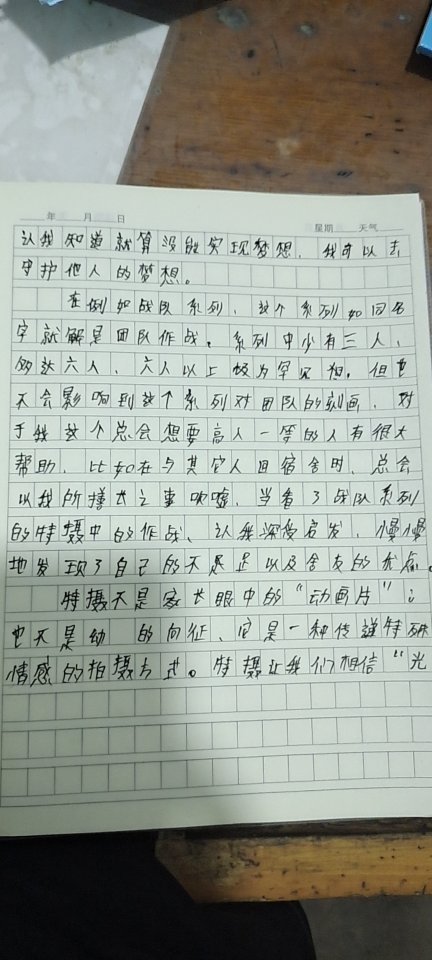 年 月 日 星期 天气
认我知道就算没能实现梦想，我可以去
守护他人的梦想。
在例如战队系列，这个系列如同名
字就解是团队作战。系列中少有三人、
达六人、六人以上极为罕见 。但也
不会影响到这个系列对团队的刻画，对
于我这个总会想要高人一等的人有很大
帮助，比如在与其它人回宿舍时，总会
以我所擅长之事吹嘘，当看了战队系列
的特摄中的作战，认我深受启发，慢慢
地发现了自己的不足 以及舍友的优点。
特摄不是家长眼中的“动画片”；
也不是幼 的向征，它是一种传递特殊
情感的拍摄方式。特摄让我们相信“光